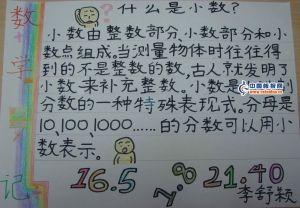 什么是小数?
小数由整数部分、小数部分和小
数点组成。当测量物体时往往得
到的不是整数的数,古人就发明了
小数来补充整数。小数是
分数的一种特殊表现式。分母是
10,100,1000……的分数可以用小
数表示。
16.5 7.8 21.40
李舒颖
数
学
记